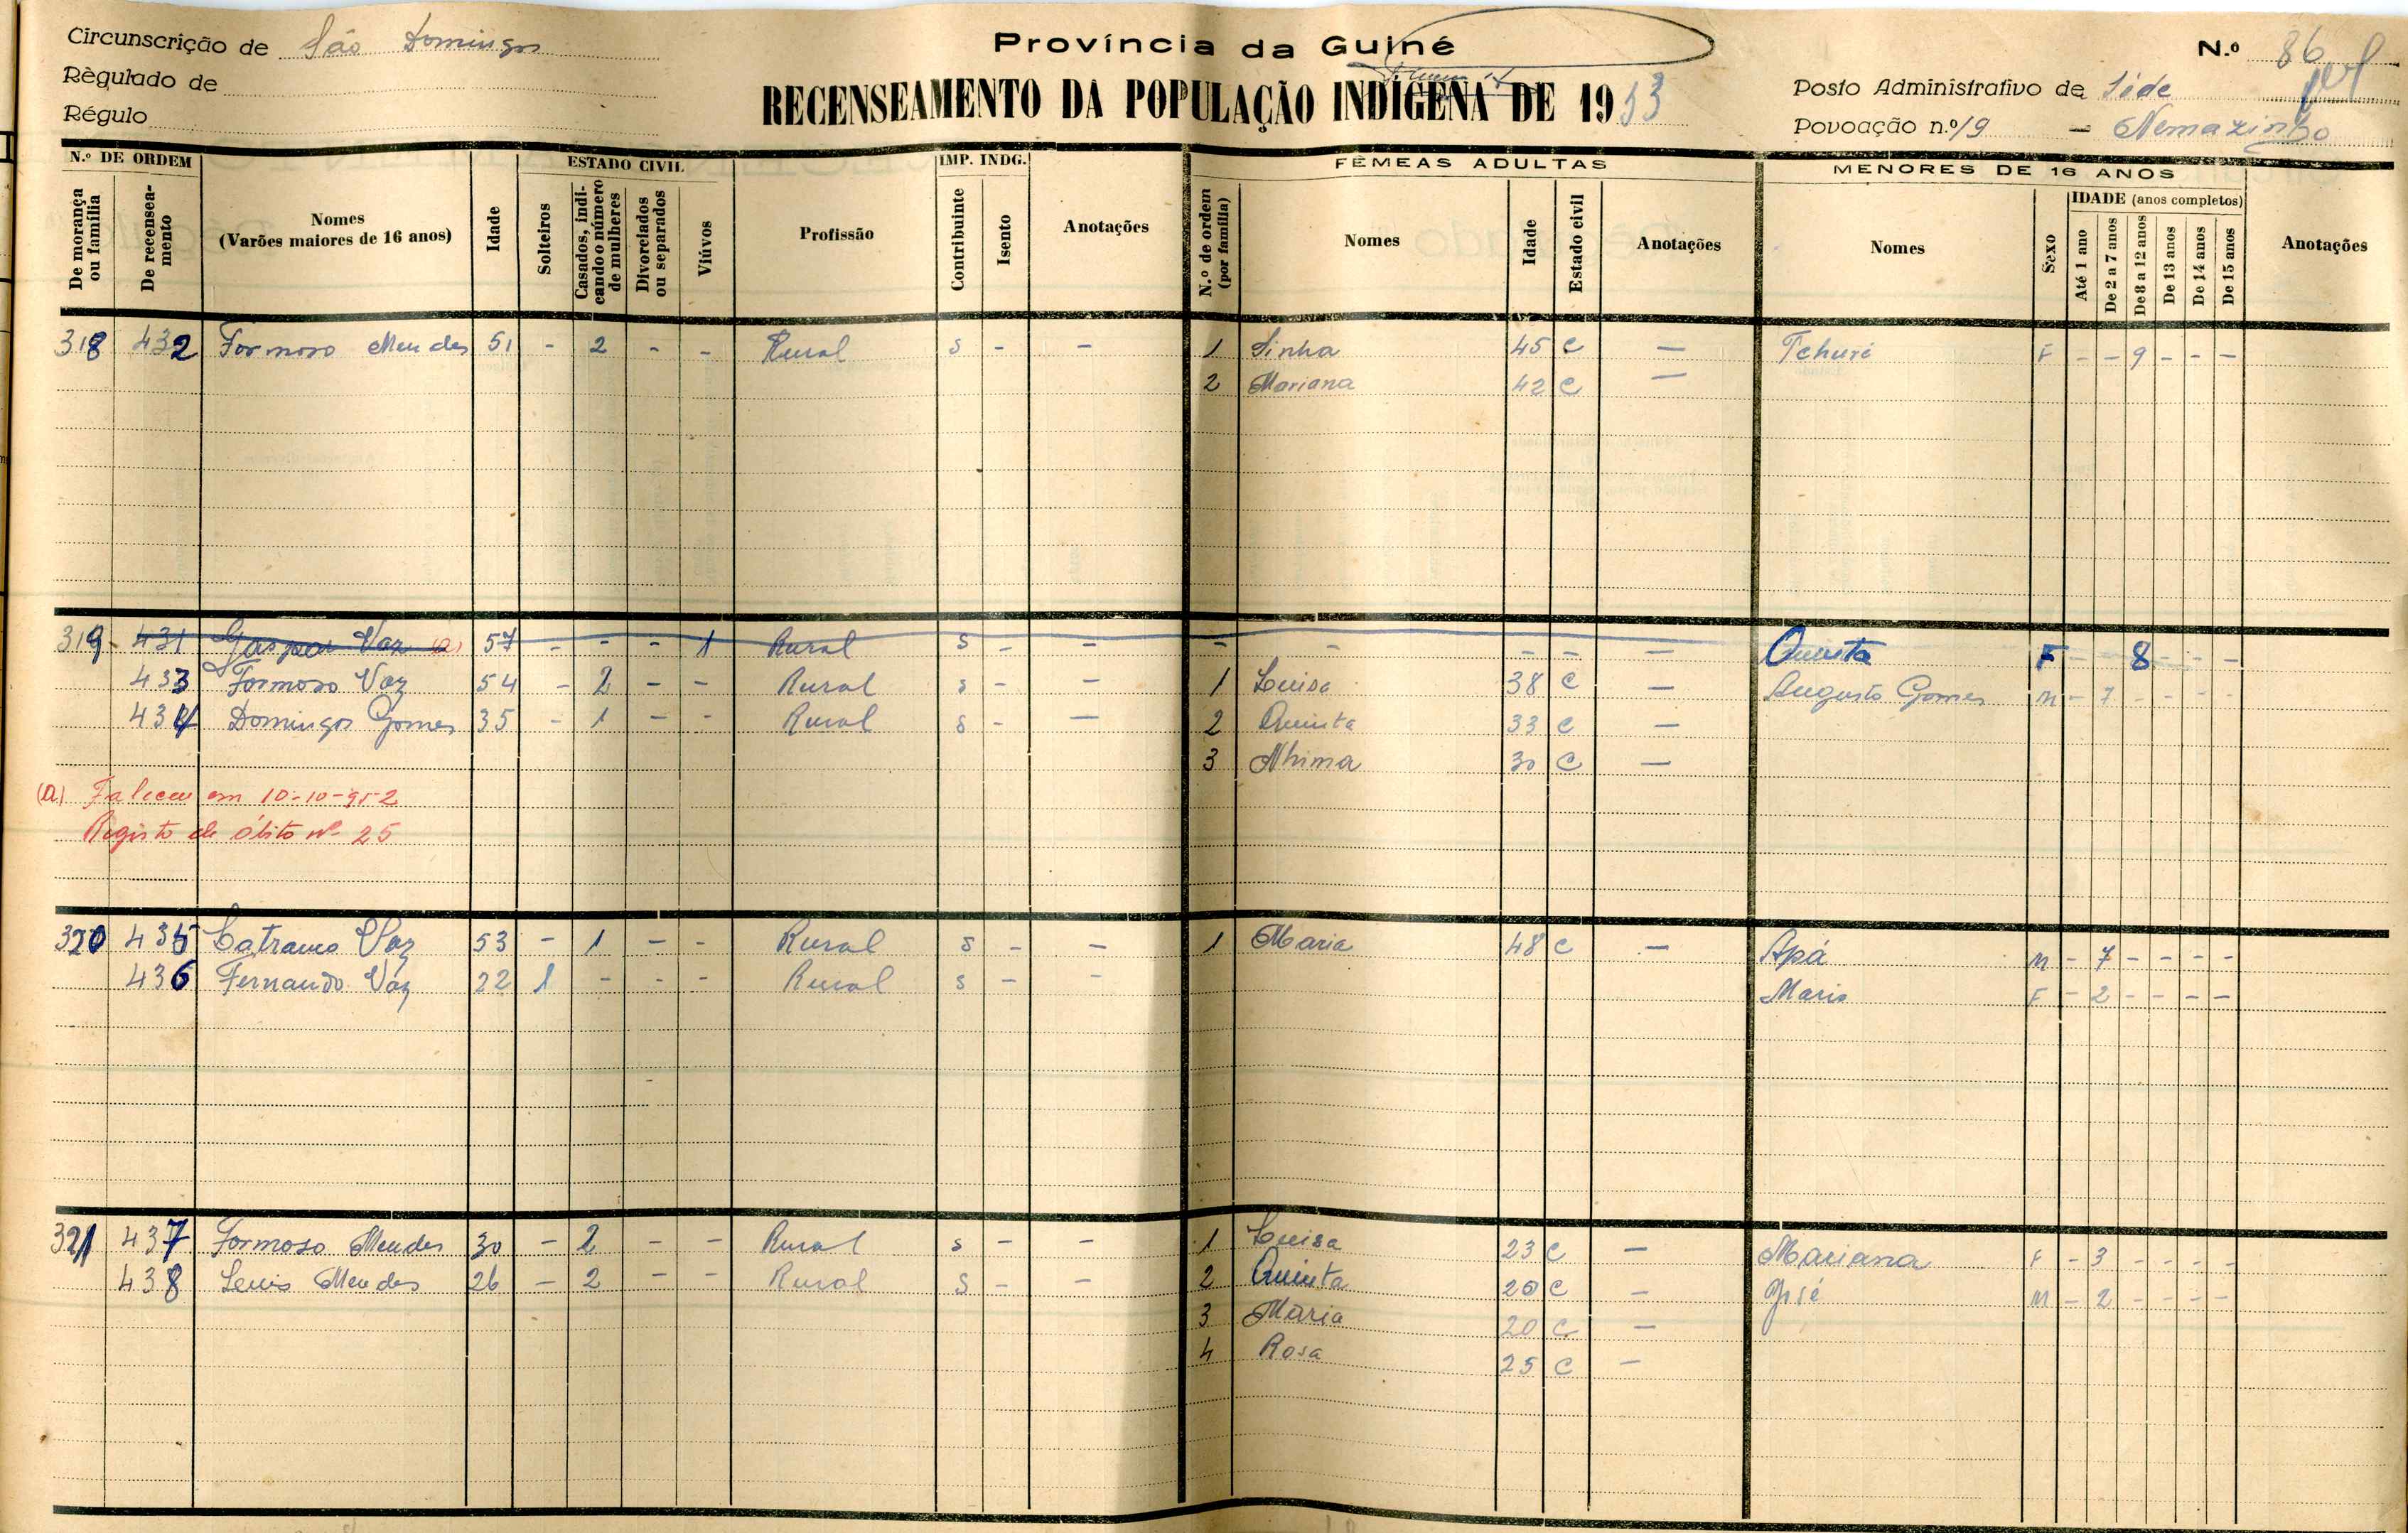 Circunscrição de São Domingos
Règulado de
Régulo
Província da Guiné
RECENSEAMENTO DA POPULAÇÃO INDÍGENA DE 1953
N.º 86
Posto Administrativo de Sede
Povoação n.º 19 — Nemazinho
N.º DE ORDEM
De morança ou família
De recenseamento
Nomes (Varões maiores de 16 anos)
Idade
ESTADO CIVIL
Solteiros
Casados, indicando o número de mulheres
Divorciados ou separados
Viúvos
Profissão
IMP. INDG.
Contribuinte
Isento
Anotações
FÊMEAS ADULTAS
N.º de ordem (por família)
Nomes
Idade
Estado civil
Anotações
MENORES DE 16 ANOS
Nomes
Sexo
IDADE (anos completos)
Até 1 ano
De 2 a 7 anos
De 8 a 12 anos
De 13 anos
De 14 anos
De 15 anos
Anotações
318 432 Formoso Mendes 51 - 2 - - Rural S - - 1 Sinha 45 C — Tchuré F - - 9 - - -
2 Mariana 42 C —
319 431 Gaspar Vaz (a) 57 - - - 1 Rural S - - - - - - — Quinta F - 8 - - -
433 Formoso Vaz 54 - 2 - - Rural S - - 1 Luisa 38 C — Augusto Gomes M - 7 - - - -
434 Domingos Gomes 35 - 1 - - Rural S - — 2 Quinta 33 C —
3 Nhima 30 C —
(a) Faleceu em 10-10-952
Registo de óbito nº 25
320 435 Catrame Vaz 53 - 1 - - Rural S - - 1 Maria 48 C — Apá M - 7 - - - -
436 Fernando Vaz 22 1 - - - Rural S - - Maria F - 2 - - - -
321 437 Formoso Mendes 30 - 2 - - Rural S - - 1 Luisa 23 C — Mariana F - 3 - - - -
438 Luis Mendes 26 - 2 - - Rural S - - 2 Quinta 20 C — José M - 2 - - - -
3 Maria 20 C —
4 Rosa 25 C —